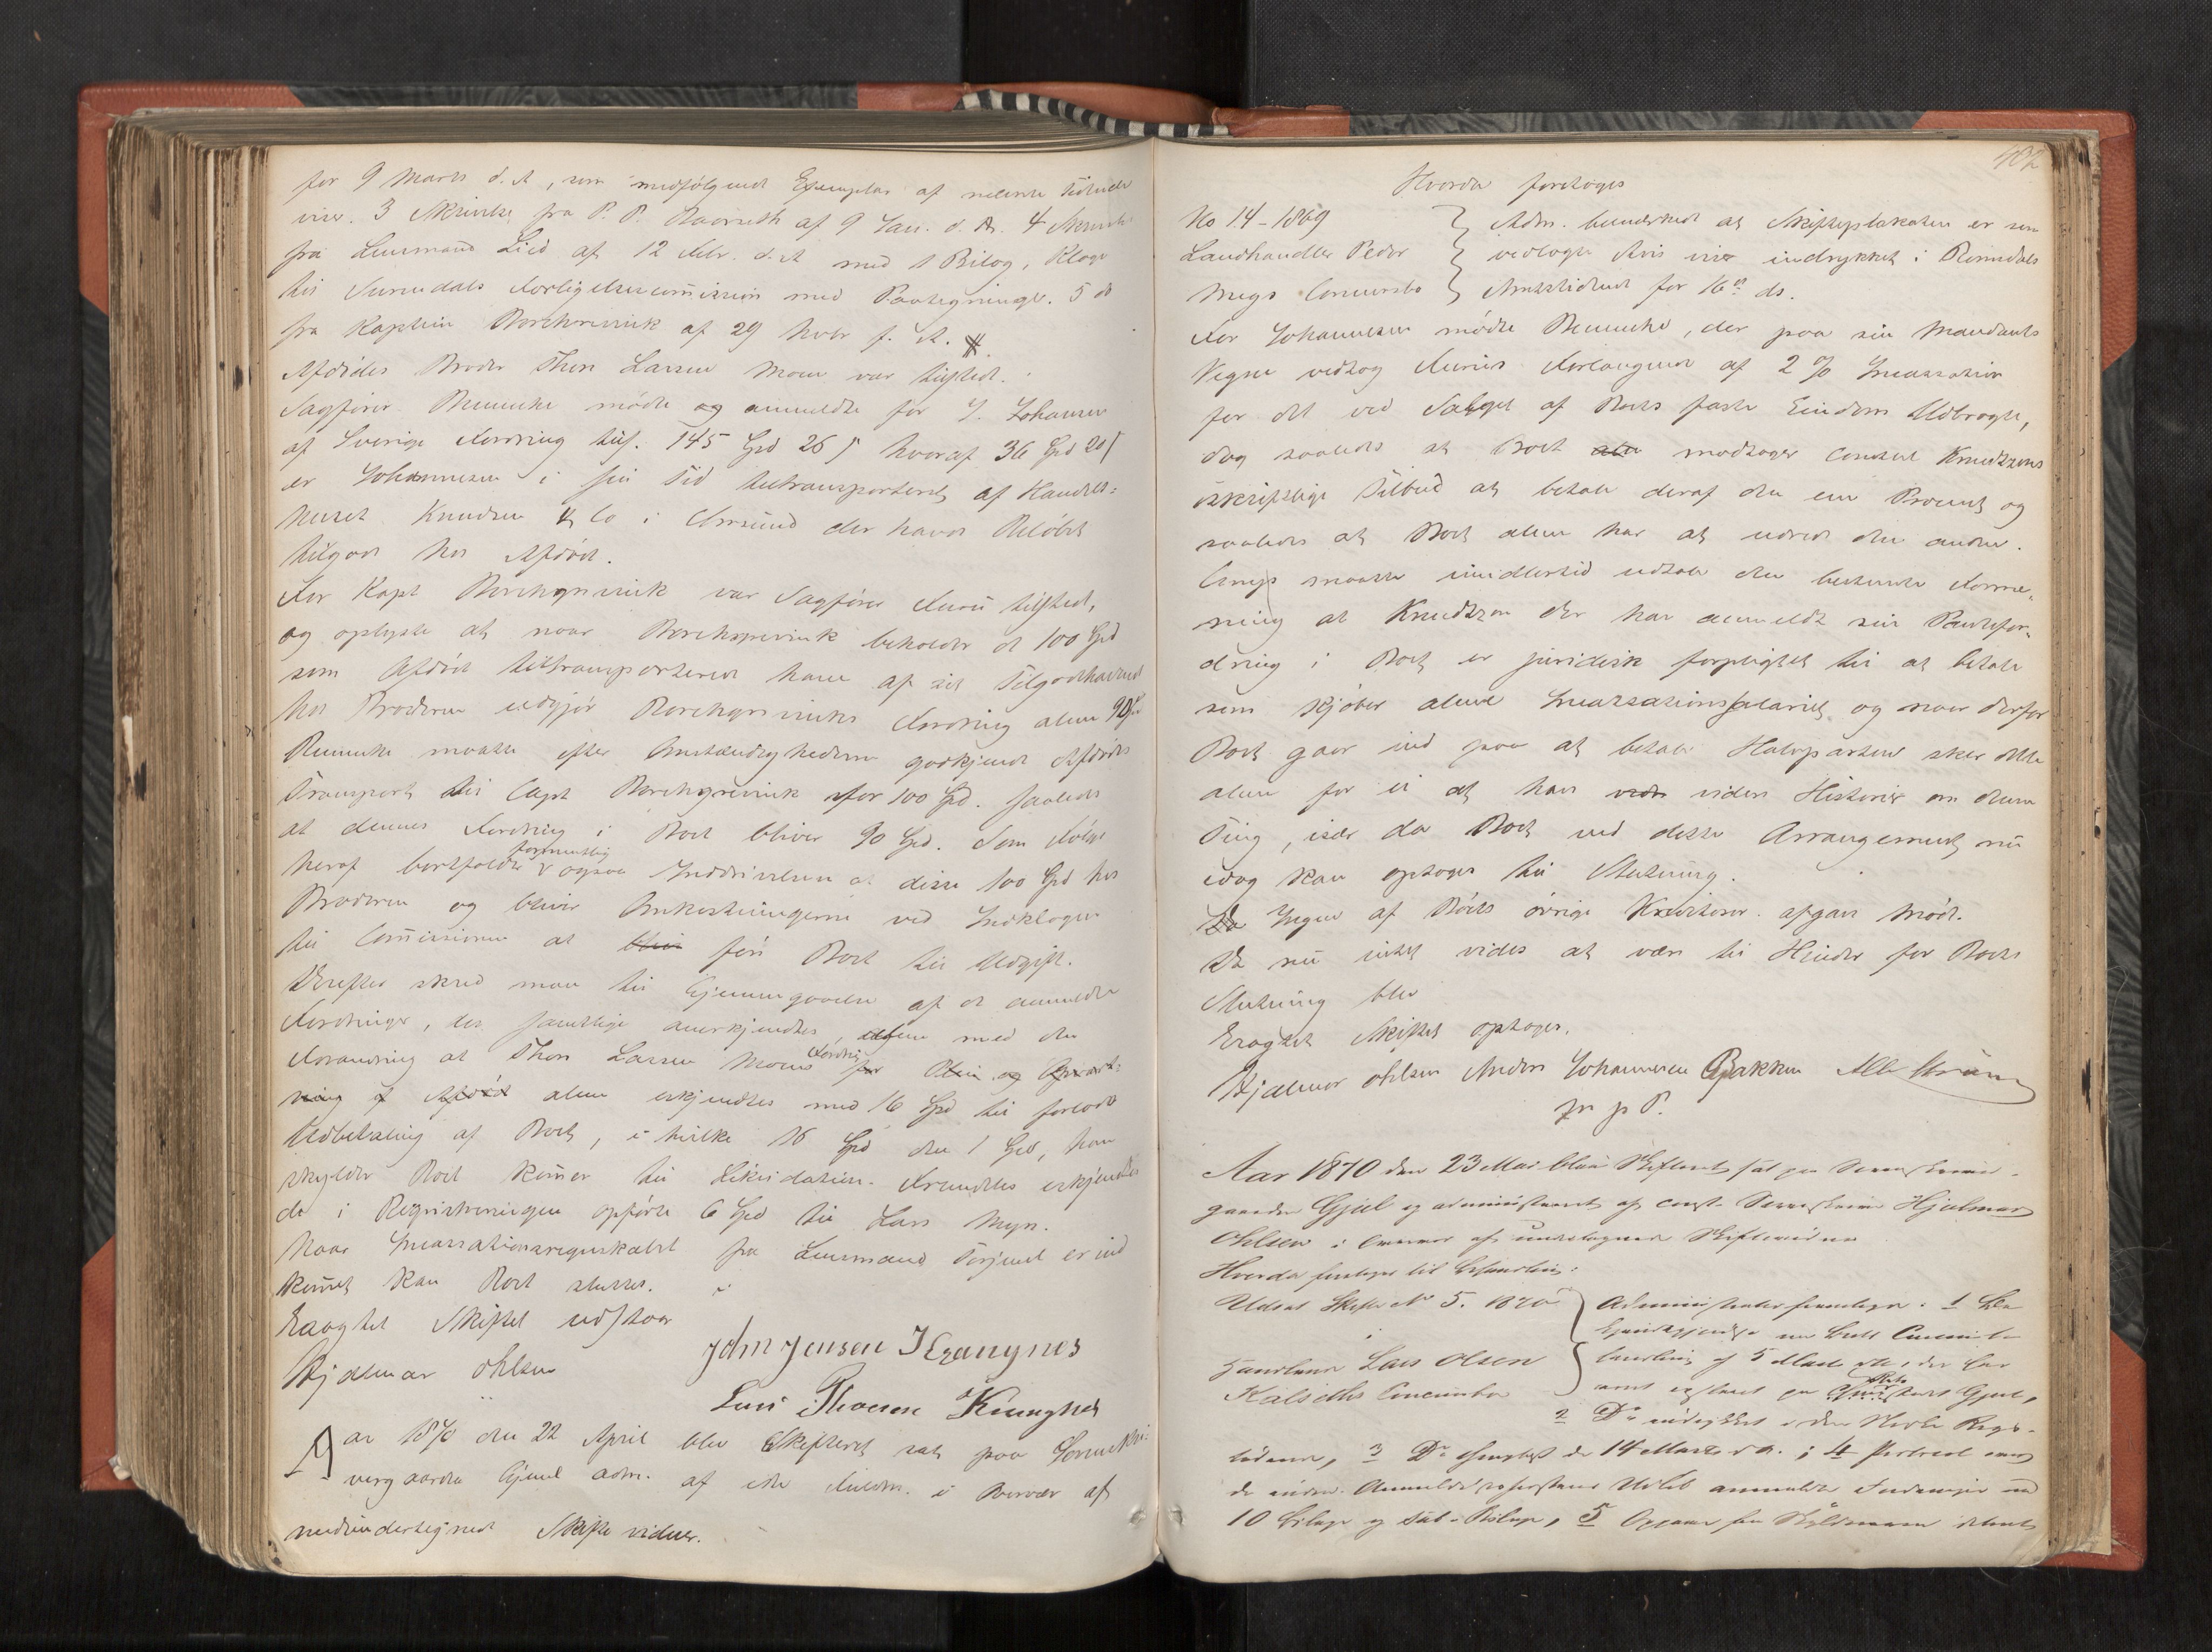 for 9 Marts d. A, som medfølgende Exemplar af nævnte Tidende
viser. 3 Skrivelse fra P. P. af 9 Jan. d. A. 4 Skrivelse
fra Lensmand Lied af 12 Febr. d. A med 1 Bilag, Klage
til Surendals Forligelsescommission med Paategninger. 5 do
fra Kaptein Borchrevink af 29 Novbr f. A.
Afdødes Broder Thore Larsen Moen var tilstede.
Sagfører mødte og anmeldte for J. Johansen
af Sverige Fordring tils. 145 Spd 26 s hvoraf 36 Spd 20 s
er Johannesen i sin Tid tiltransporteret af Handels-
huset Knudsen & Co i der havde Beløbet
tilgode hos Afdøde.
For Kapt Borchgrevink var Sagfører tilstede,
og oplyste at naar Borchgrevink beholder de 100 Spd
som Afdøde tiltransporterede ham af sit Tilgodehavende
hos Broderen udgjør Borchgrevinks Fordring alene 90 Spd
maatte efter Omstændighederne godkjende Afdødes
Transport til Capt Borchgrevink for 100 Spd. saaledes
at dennes Fordring i Boet bliver 90 Spd. Som Følge
heraf bortfalder formentlig ogsaa Inddrivelsen af disse 100 Spd hos
Broderen og bliver Omkostningerne ved Indklagen
til Commissionen at bliv føre Boet til Udgift.
Derefter skred man til Gjennemgaaelse af de anmeldte
Fordringer, der samtlige anerkjendtes, alene med den
Forandring at Thore Larsen Moens Fordring for Pleie og Opvart-
ning af Afdøde alene erkjendtes med 16 Spd til forlods
Udbetaling af Boet, i hvilke 16 Spd den 1 Spd, han
skylder Boet kommer til Likvidation. Fremdeles erkjendtes
de i Registreringen opførte 6 Spd til Lars Myn.
Naar Incassationsregnskabet fra Lensmand Torjul er ind
kommet kan Boet sluttes.
Eragtet Skiftet udstaar
Hjalmar Ohlsen
John Jensen Kvangnes
Lars Thoresen Kvangnes
Aar 1870 den 22 April blev Skifteret sat paa Sorenskri-
vergaarden Gjeul adm. af den i Overvær af
medundertegnede Skiftevidner.
Hvorda foretoges
No 14 - 1869
Landhandler Peder
Megs Concursbo
Adm. bemærkede at Skifteplakaten er som
vedlagte Avis viser indrykket i Romsdals
Amtstidende for 16de ds.
For Johannesen mødte, der paa sin Mandants
Vegne vedtog Forlangende af 2 % Incassation
for det ved Salget af Boets faste Eiendom Udbragte,
dog saaledes at Boet modtager Consul Knudtzons
skriftlige Tilbud at betale deraf den ene Procent og
saaledes at Boet alene har at udrede den anden.
maatte imidlertid udtale den bestemte Forme-
ning at Knudtzon der har anmeldt sin Pantefor-
dring i Boet er juridisk forpligtet til at betale
som Kjøber alene Incassationssalariet, og naar derfor
Boet gaar ind paa at betale Halvparten sker dette
alene for ei at have vider videre Historier om denne
Ting, især da Boet ved dette Arrangement nu
idag kan optages til Slutning.
Da Ingen af Boets øvrige Kreditorer afgav Møde.
Da nu intet vides at være til Hinder for Boets
Slutning blev
Eragtet Skiftet optages.
Hjalmar Ohlsen Anders Johannesen Bakken
m p P.
Aar 1870 den 23 Mai blev Skifteret sat paa Sorenskriver-
gaarden Gjeul og administreret af const. Sorenskriver Hjalmar
Ohlsen i Overvær af undertegnede Skiftevidner
Hvorda foretoges til Behandling:
Udsat Skifte No 5. 1870
i
Handlende Lars Olsen
Kalseths Concursbo
Administrator fremlagde: 1
Boets
behandling af 5 Marts der har
været opslaaet paa Gjeul,
2 Do indrykket i den Norske Rigs-
tidende, 3 Do 14 Marts d. A.; 4
de inden Anmeldelsesfristens Udløb anmeldte Fordringer med
10 Bilage og Sub-Bilage, 5 Opgave fra